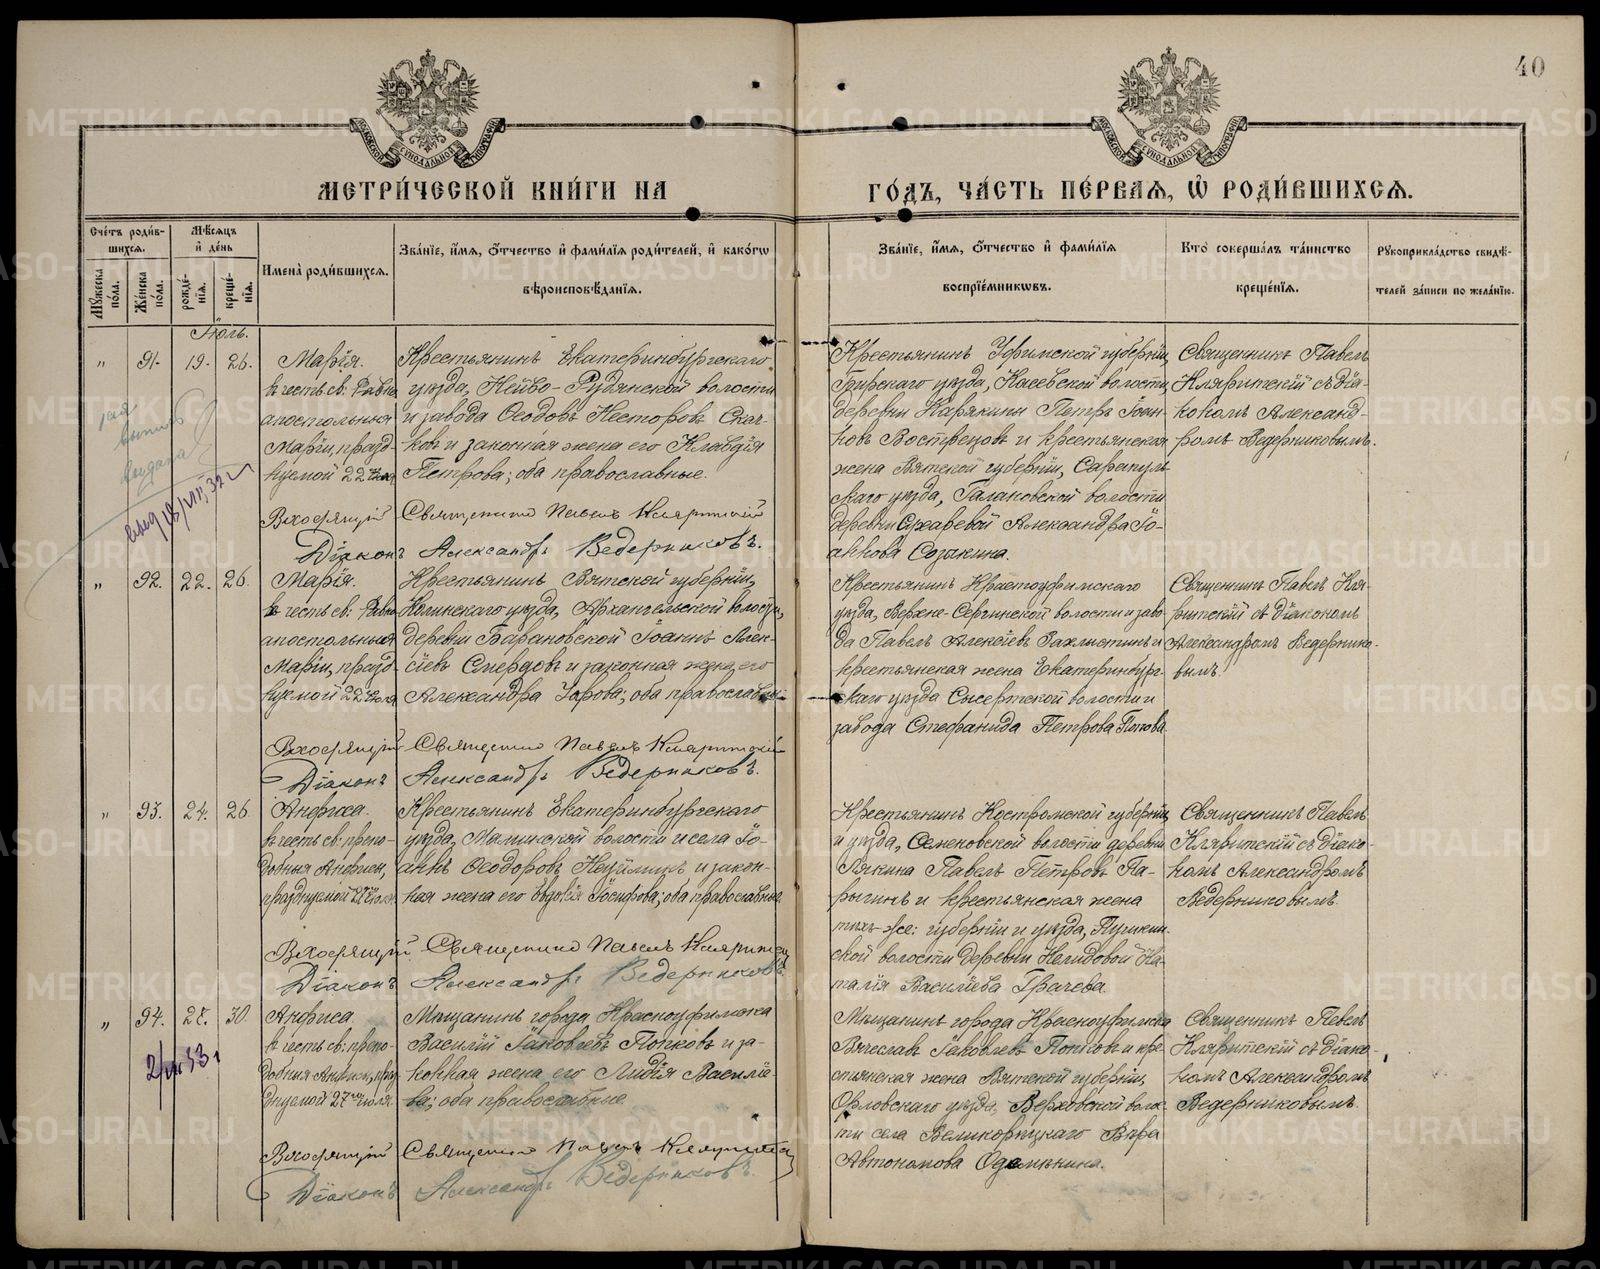 40
МЕТРИ́ЧЕСКОЙ КНИ́ГИ НА
ГО́ДЪ, ЧА́СТЬ ПЕ́РВАѦ, Ѡ҆ РОДИ́ВШИХСѦ.
Сче́тъ роди́в-
шихсѧ.
Мꙋжеска по́ла.
Же́нска по́ла.
Мѣ́сѧцъ
и҆ де́нь
рожде́-нїѧ.
креще́-нїѧ.
И҆мена̀ роди́вшихсѧ.
Зва́нїе, и҆́мѧ, ѻ҆́тчество и҆ фами́лїѧ роди́телей, и҆ како́гѡ
вѣроисповѣ́данїѧ.
Зва́нїе, и҆́мѧ, ѻ҆́тчество и҆ фами́лїѧ
воспрїе́мникѡвъ.
Кто̀ соверша́лъ та́инство
креще́нїѧ.
Рꙋкоприкла́дство свидѣ́-
телей за́писи по жела́нїю.
Іюль.
" 91. 19. 26.
Марія.
въ честь св: Равно
апостольныя
Маріи, празд-
нуемой 22 Іюля
Крестьянинъ Екатеринбургскаго
уѣзда, Нейво-Рудянской волости
и завода Ѳеодоръ Несторовъ Скач-
ковъ и законная жена его Клавдія
Петрова; оба православные.
Крестьянинъ Уфимской губерніи,
Бирскаго уѣзда, Касевской волости,
деревни Карякини Петръ Іоан-
новъ Вострецовъ и крестьянская
жена Вятской губерніи, Сарапуль-
скаго уѣзда, Галановской волости
деревни Александра Іо-
аннова Созыкина.
Священникъ Павелъ
Кляритскій съ Діа-
кономъ Александ-
ромъ Ведерниковымъ.
Священникъ Павелъ Кляритскій
Діаконъ Александръ Ведерниковъ.
" 92. 22. 26.
Марія.
въ честь св: Равно
апостольныя
Маріи, празд-
нуемой 22 Іюля
Крестьянинъ Вятской губерніи,
Нолинскаго уѣзда, Архангельской волости,
деревни Барановской Іоаннъ Алек-
сіевъ Смердовъ и законная жена его
Александра Уарова; оба православные
Крестьянинъ Красноуфимскаго
уѣзда, Верхне-Сергинской волости и заво-
да Павелъ Алексіевъ и
крестьянская жена Екатеринбург-
скаго уѣзда Сысертской волости и
завода Стефанида Петрова Попова
Священникъ Павелъ Кля-
ритскій съ Діакономъ
Александромъ Ведернико-
вымъ.
Священникъ Павелъ Кляритскій
Діаконъ Александръ Ведерниковъ.
" 93. 24. 26
Анфиса.
въ честь св: препо-
добныя Анфисы,
празднуемой 27 Іюля
Крестьянинъ Екатеринбургскаго
уѣзда, Маминской волости и села Іо-
аннъ Ѳеодоровъ и закон-
ная жена его Евдокія Іосифова; оба православные
Крестьянинъ Костромской губерніи
и уѣзда, Семеновской волости деревни
Павелъ Петровъ Па-
рыгинъ и крестьянская жена
тѣхъ-же: губерніи и уѣзда,
ской волости деревни Нелидовой На-
талія Василіева Грачева
Священникъ Павелъ
Кляритскій съ Діако-
номъ Александромъ
Ведерниковымъ.
Священникъ Павелъ Кляритскій
Діаконъ Александръ Ведерниковъ.
" 94. 27. 30.
Анфиса.
въ честь св: препо-
добныя Анфисы, праз-
днуемой 27го Іюля
Мѣщанинъ города Красноуфимска
Василій Іаковлевъ Попковъ и за-
конная жена его Лидія Василіе-
ва; оба православные.
Мѣщанинъ города Красноуфимска
Вячеславъ Іаковлевъ и кре-
стьянская жена Вятской губерніи,
Орловскаго уѣзда, Верховской воло-
сти села Великорѣцкаго Вѣра
Автономова
Священникъ Павелъ
Кляритскій съ Діако-
номъ Александромъ
Ведерниковымъ.
Священникъ Павелъ Кляритскій
Діаконъ Александръ Ведерниковъ.
METRIKI.GASO-URAL.RU